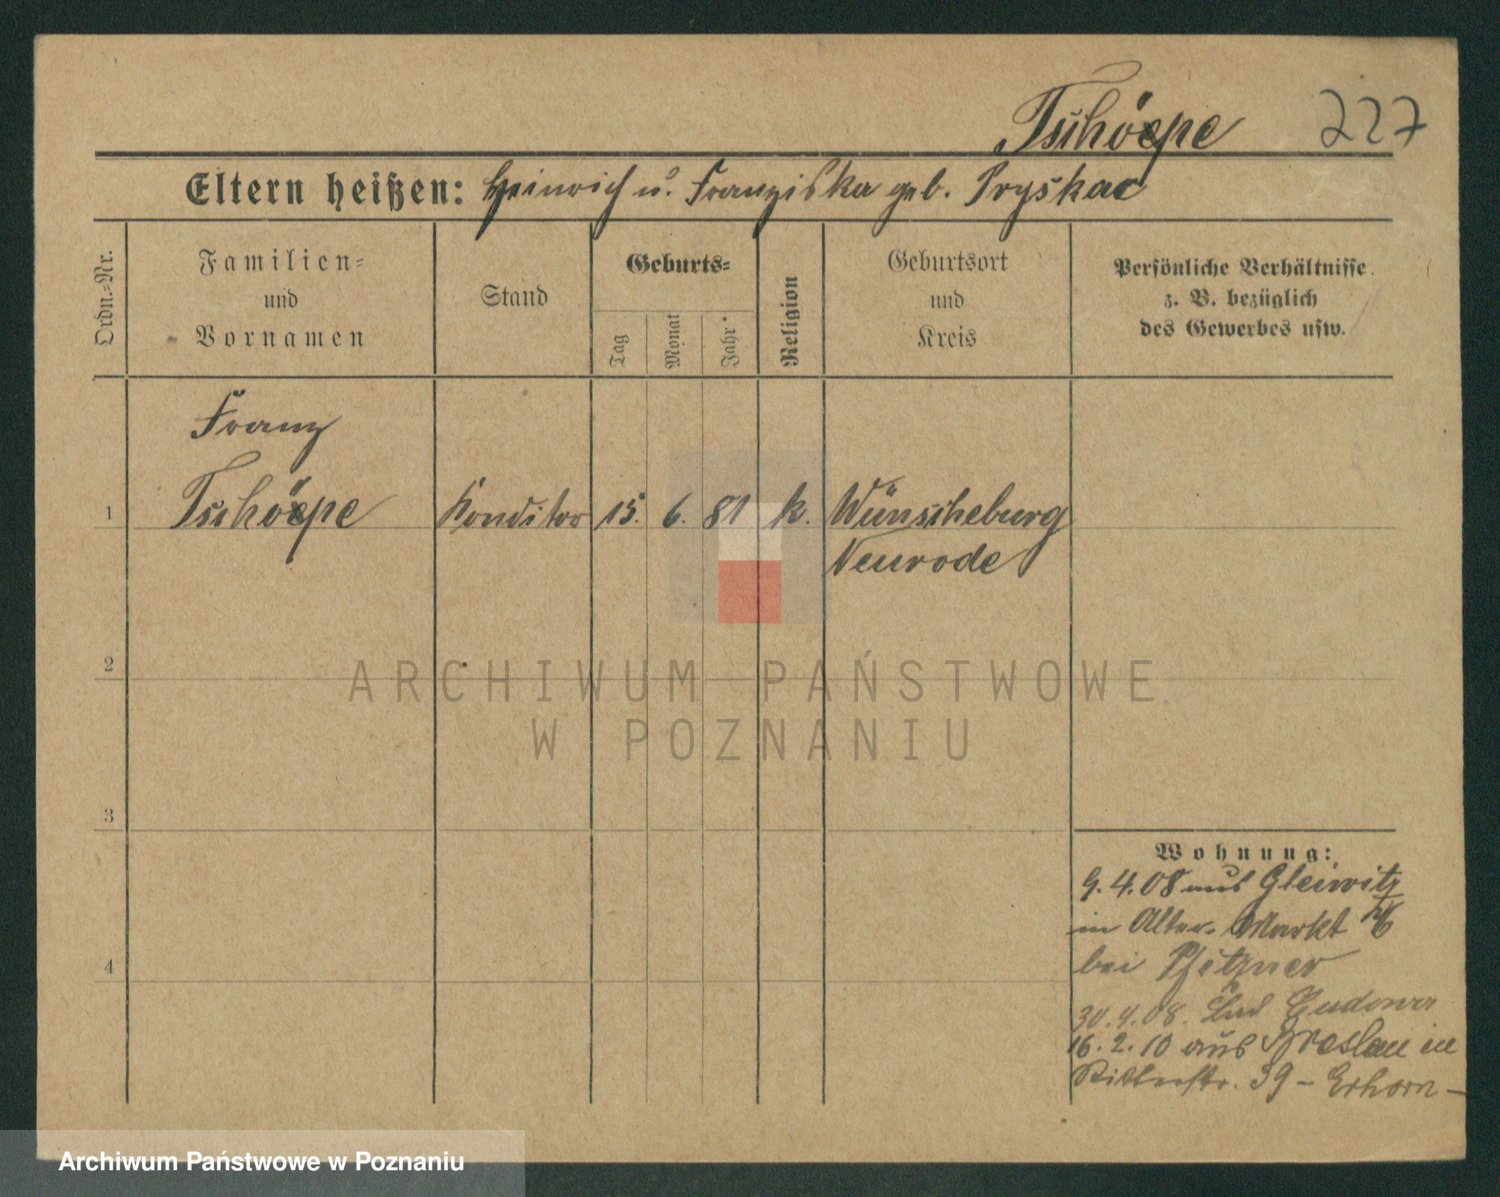 Tschöpe 227
Eltern heißen: Heinrich u. Franziska geb. Pryskac
Ordn.-Nr.
Familien- und Vornamen
Stand
Geburts-
Tag
Monat
Jahr
Religion
Geburtsort und Kreis
Persönliche Verhältnisse
z. B. bezüglich
des Gewerbes usw.
Franz
1 Tschöpe Konditor 15. 6. 81 k. Wünscheburg
Neurode
2
ARCHIWUM PAŃSTWOWE
W POZNANIU
3
Wohnung:
9.4.08 aus Gleiwitz
in Alter Markt
bei Pfitzner
4
30.4.08. Bad Cudowa
16.2.10 aus Breslau in
Ritterstr. 39 - Erhorn -
Archiwum Państwowe w Poznaniu